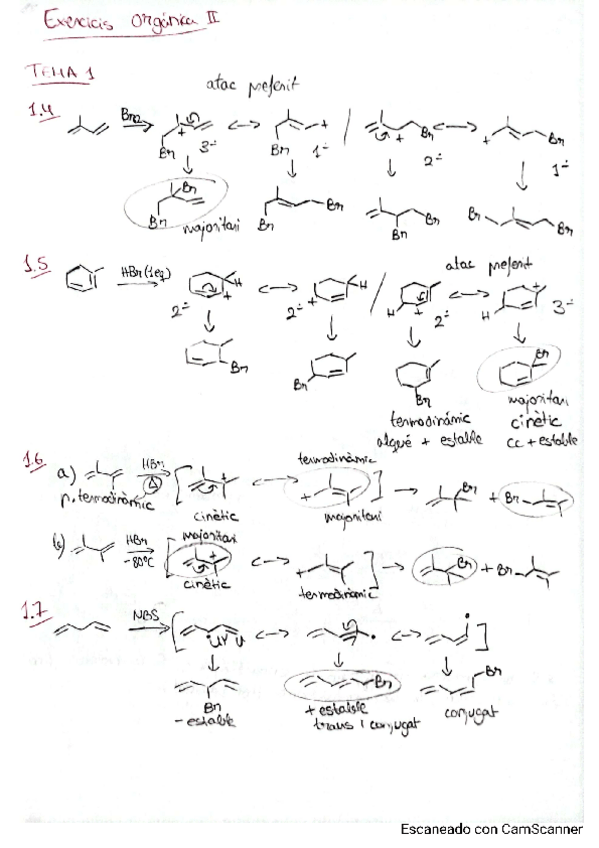 Exercicis Orgánica II
TEMA 1
atac preferit
1.4 Br2
Br 3º Br 1º Br 2º Br 1º
Br
Br majoritari Br Br Br Br Br Br
1.5 HBr (1eq) atac preferit
H H H H
2º 2º 2º 3º
Br Br Br Br
majoritari
termodinámic cinètic
alqué + estable cc + estable
1.6 a) HBr Δ termodinàmic
p. termodinàmic
cinètic majoritari
Br + Br
b) HBr -80ºC majoritari
cinètic termodinàmic
Br + Br
1.7 NBS
Br Br Br
- estable + estable conjugat
trans i conjugat
Escaneado con CamScanner